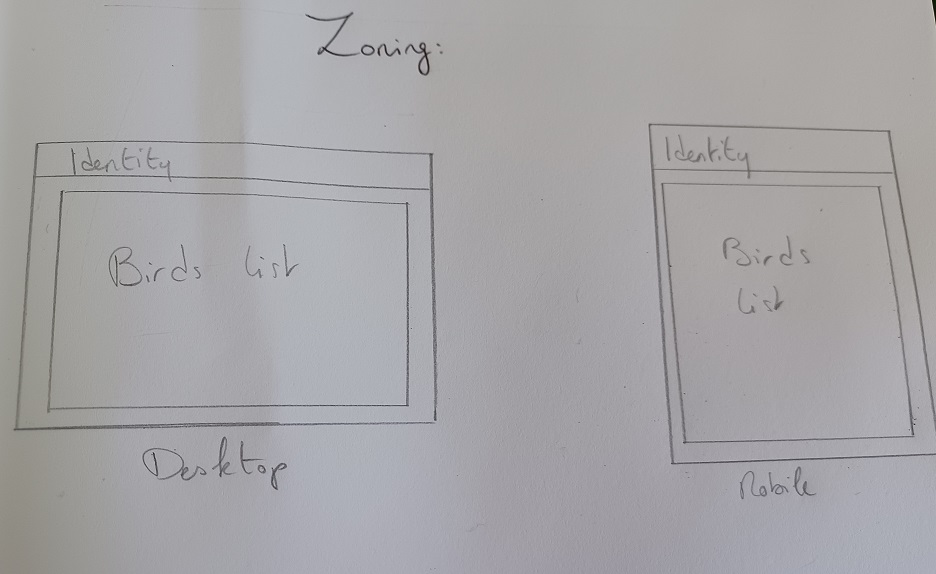 Zoning:
Identity
Birds list
Desktop
Identity
Birds
list
Mobile